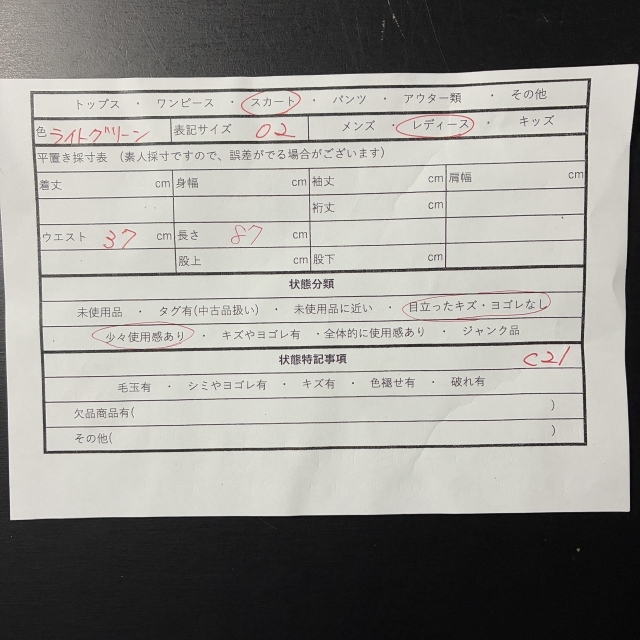 トップス ・ ワンピース ・ スカート ・ パンツ ・ アウター類 ・ その他
色 ライトグリーン 表記サイズ 02 メンズ ・ レディース ・ キッズ
平置き採寸表 (素人採寸ですので、誤差がでる場合がございます)
着丈 cm 身幅 cm 袖丈 cm 肩幅 cm
裄丈 cm
ウエスト 37 cm 長さ 87 cm
股上 cm 股下 cm
状態分類
未使用品 ・ タグ有(中古品扱い) ・ 未使用品に近い ・ 目立ったキズ・ヨゴレなし
少々使用感あり ・ キズやヨゴレ有 ・全体的に使用感あり ・ ジャンク品
状態特記事項 C21
毛玉有 ・ シミやヨゴレ有 ・ キズ有 ・ 色褪せ有 ・ 破れ有
欠品商品有( )
その他( )